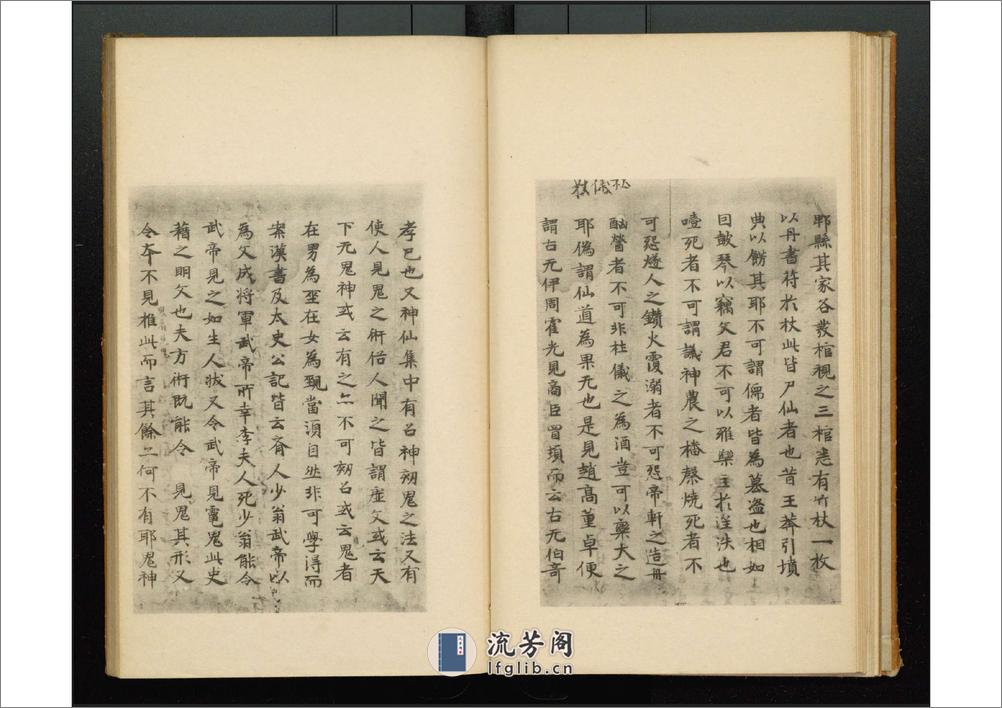 儀狄
郫縣其家各發棺視之三棺悉有竹杖一枚
以丹書符於杖此皆尸仙者也昔王莽引墳
典以飾其耶不可謂儒者皆為墓盜也相如
曰鼓琴以竊文君不可以雅樂主於淫泆也
噎死者不可謂議神農之播穀燒死者不
可怨燧人之鑽火覆溺者不可怨帝軒之造舟
酗醟者不可非杜儀之為酒豈可以欒大之
耶偽謂仙道為果无也是見趙高董卓便
謂古无伊周霍光見商臣冒頓而云古无伯奇
孝巳也又神仙集中有召神劾鬼之法又有
使人見鬼之術俗人聞之皆謂虛文或云天
下无鬼神或云有之亦不可劾召或云鬼者
在男為巫在女為覡當須自然非可學得而
案漢書及太史公記皆云齊人少翁武帝以
為文成將軍武帝所幸李夫人死少翁能令
武帝見之如生人狀又令武帝見竈鬼此史
籍之明文也夫方術既能令見鬼其形又
令本不見推此而言其餘亦何不有耶鬼神
流芳阁
lfglib.cn